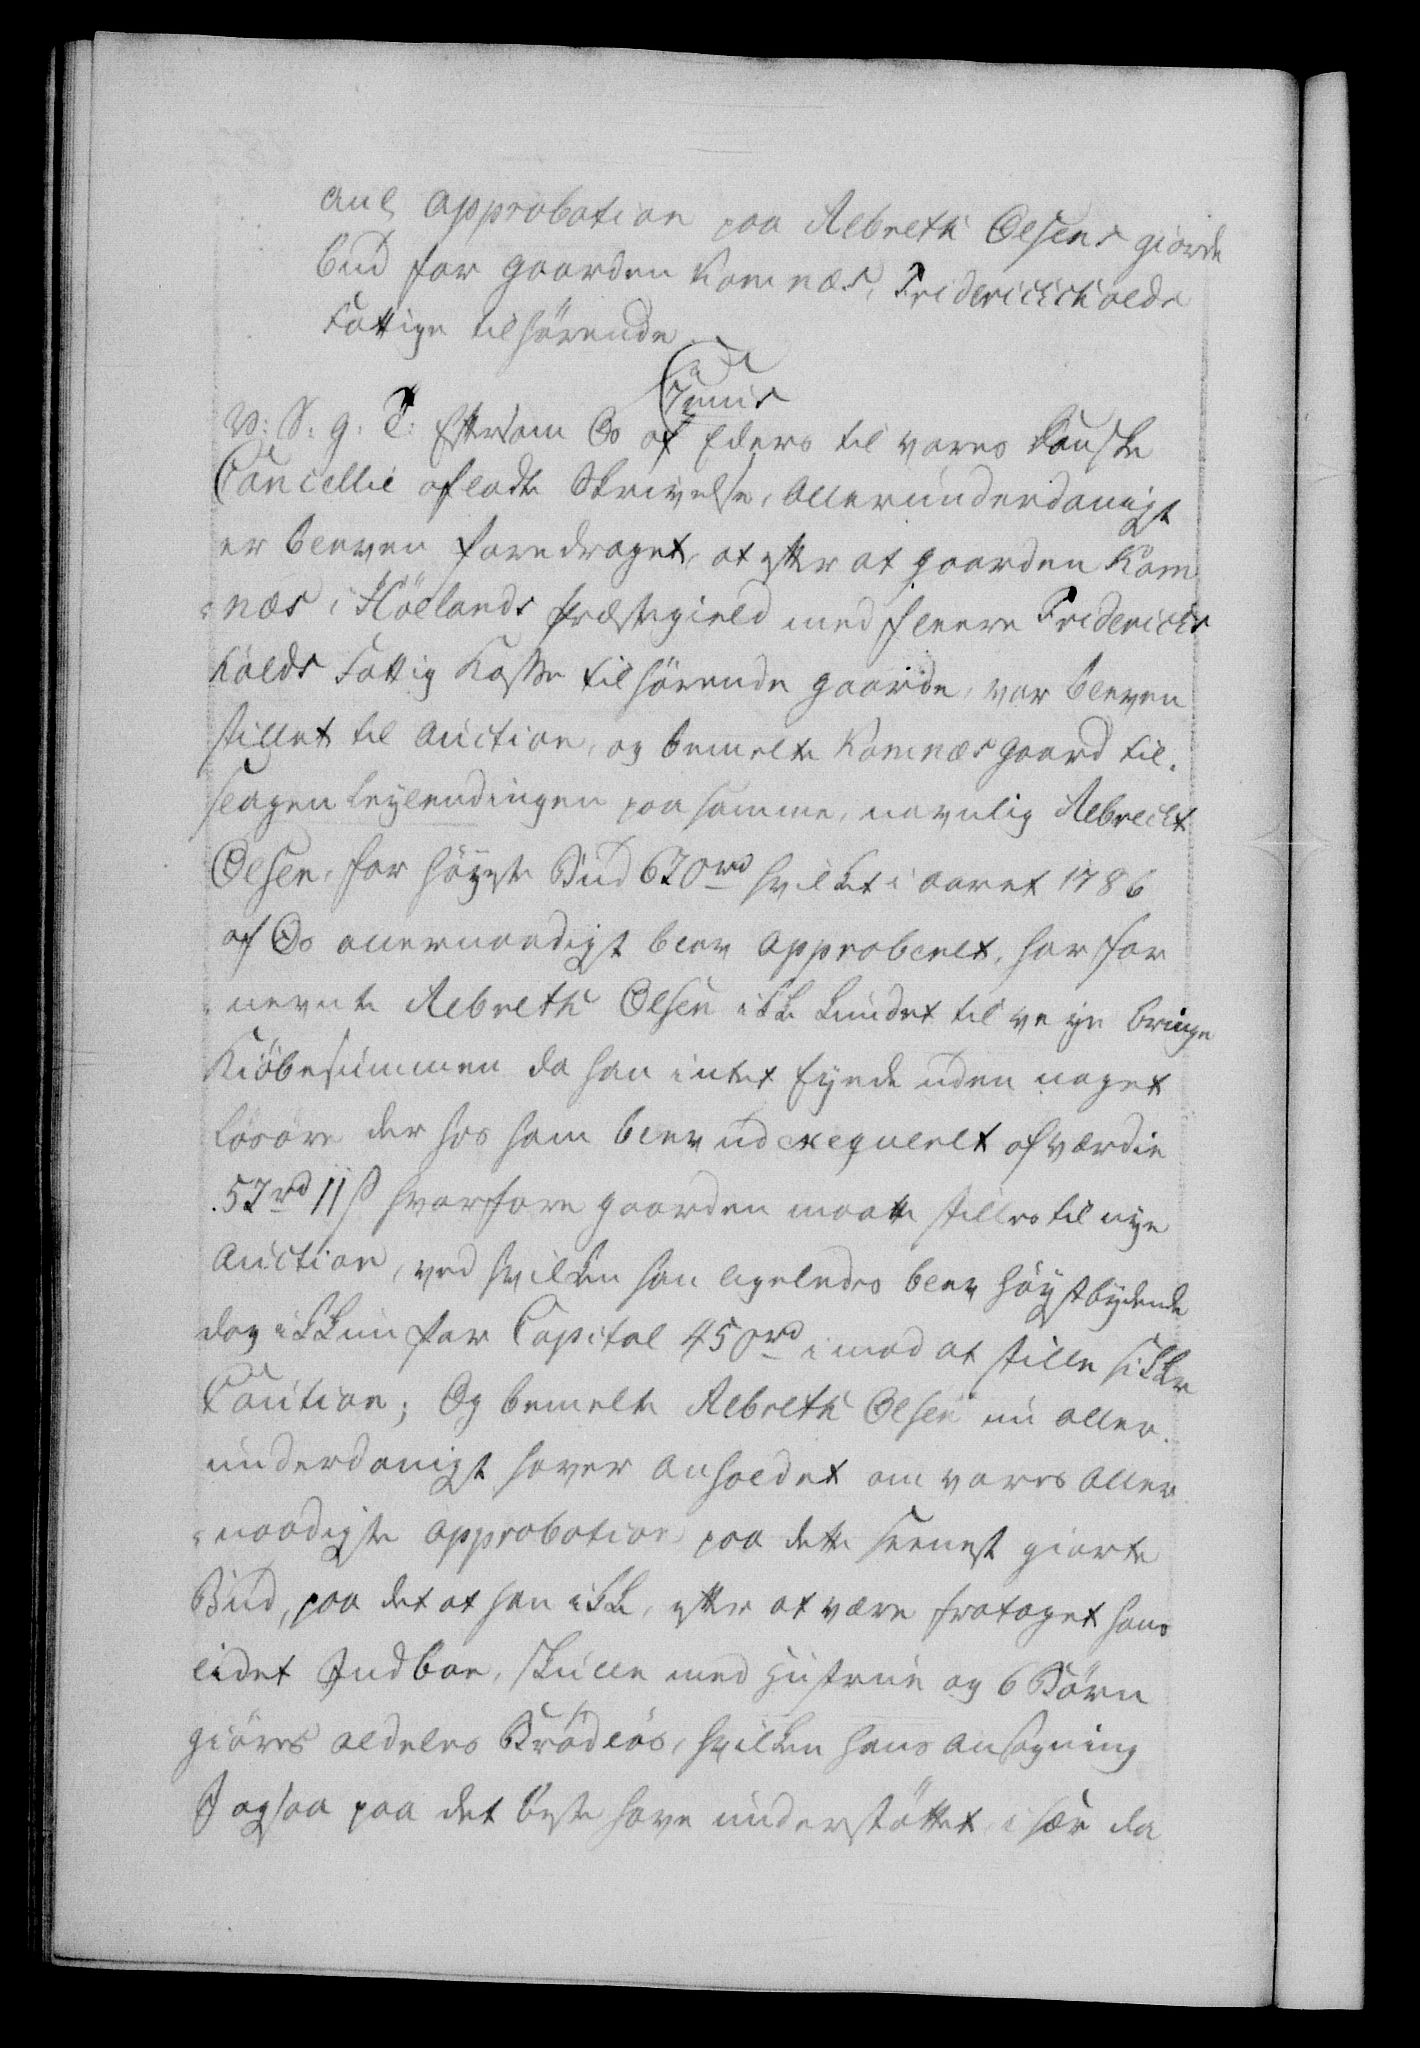 anl Approbation paa Albreth Olsens giorde
bud for gaarden Komnæs, Fridericichalds
Fattige tilhørende.
Junis
V: S: g: T: Eftersom Os af Eders til vores danske
Cancellie afladte Skrivelse, Allerunderdanigst
er bleven foredraget, at efter at gaarden Kom
næs i Hölands præstegield med fleere Fridericis
halds Fattig Kasse tilhørende gaarde, var bleven
stillet til Auction, og bemelte Komnæs gaard til.
slagen Leylendingen paa samme, navnlig Albrecht
Olsen, for höyste Bud 670 rd hvilket i aaret 1786
af Os allernaadigst blev approberet, har for
nevnte Albreth Olsen ikke kundet til veye bringe
Kiöbesummen da han intet eyede uden noget
Lösöre der hos ham blev udexequeret af værdie
57 rd 11 s hvorfore gaarden maatte stilles til nye
Auction, ved hvilken han ligeledes blev höystbydende
dog ikkun for Capital 450 rd imod at stille sikker
Caution; Og bemelte Albreth Olsen nu aller.
underdanigst haver anholdet om vores aller
naadigste approbation paa dette seenest giorte
Bud, paa det at han ikke, efter at være frataget hans
lidet Indboe, skulle med Hustrue og 6 Börn
giöres aldeles Brödlös, hvilken hans ansøgning
I ogsaa paa det beste have understöttet, i sær da